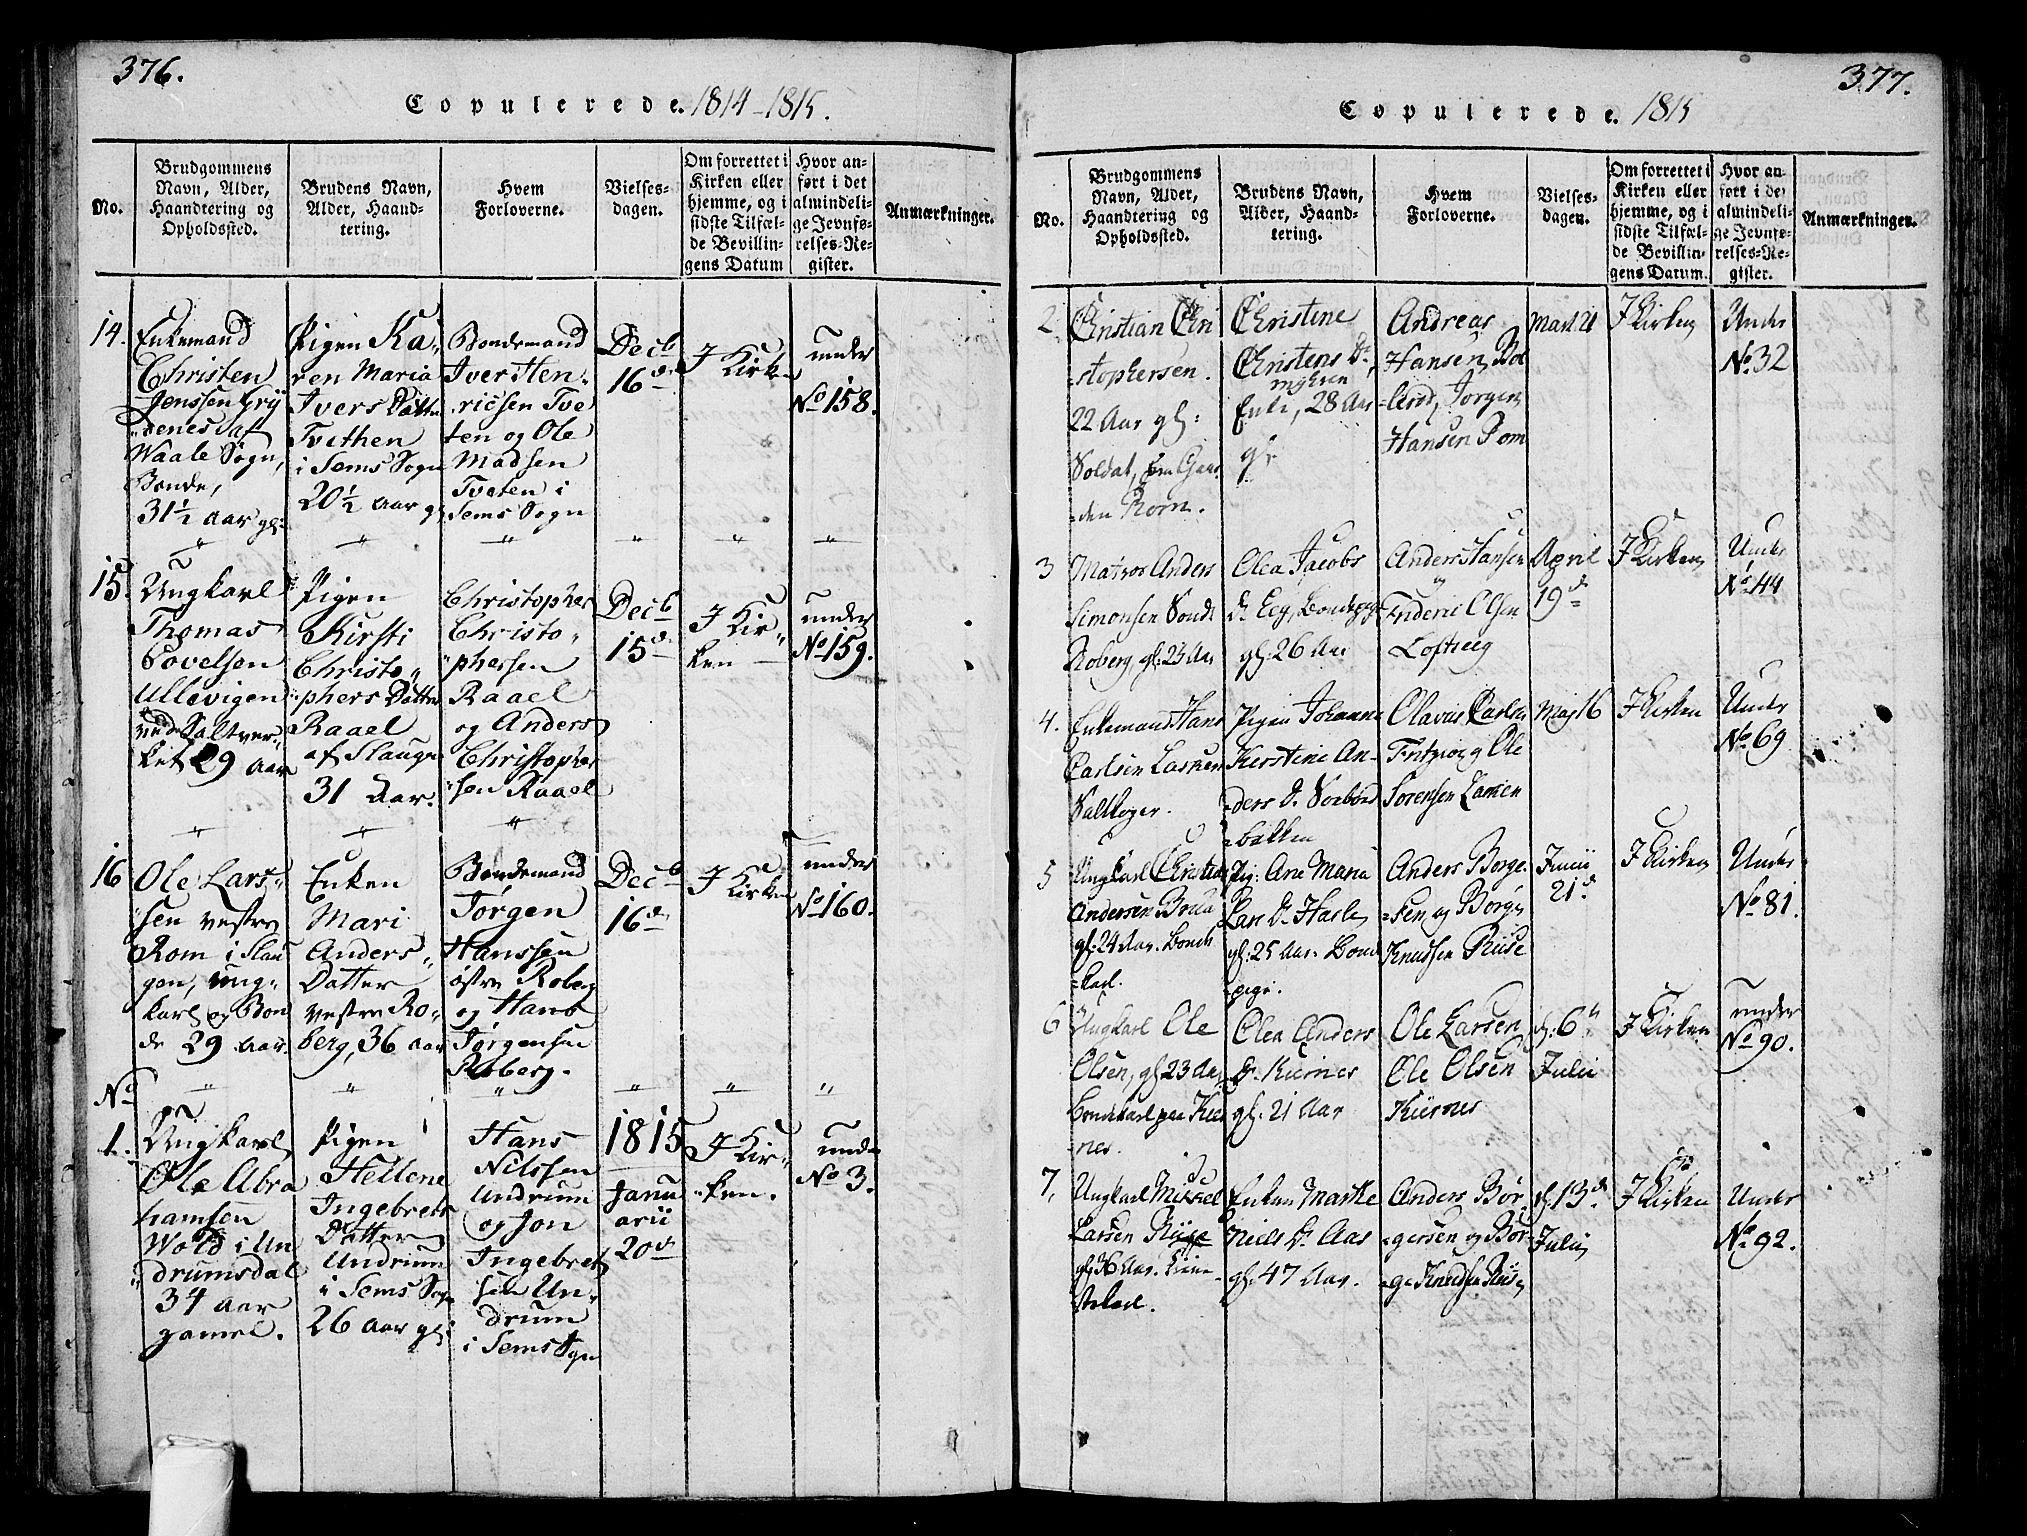 376.
Copulerede. 1814-1815.
No.
Brudgommens
Navn, Alder,
Haandtering og
Opholdssted.
Brudens Navn,
Alder, Haand-
tering.
Hvem
Forloverne.
Vielses-
dagen.
Om forrettet i
Kirken eller
hjemme, og i
sidste Tilfæl-
de Bevillin-
gens Datum
Hvor an-
ført i det
almindeli-
ge Jevnfø-
relses-Re-
gister.
Anmærkninger.
14.
Enkemand
Christen
Jenssen Grij
denes af
Waale Sogn,
Bonde,
31½ aar gl:
Pigen Ka-
ren Maria
Ivers Datter
Tvethen
i Sems Sogn
20½ aar gl
Bondemand
Iver Hen-
ricsen Tve
ten og Ole
Madsen
Tveten i
Sems Sogn
Decb
16de
I Kirken
under
No 158.
15.
Ungkarl
Thomas
Povelsen
Ullevigen
ved Saltver-
ket 29 aar
Pigen
Kirsti
Christo-
phers Datter
Raael
af Slaugn
31 Aar.
Christopher
Christo-
phersen
Raael
og Anders
Christopher
sen Raael
Decb
15de
I Kir-
ken
under
No 159.
16
Ole Lars-
sen vestre
Rom i Slau
gen, ung-
karl og Bon
de 29 aar.
Enken
Mari
Anders-
Datter
vestre Ro-
berg, 36 aar
Bondemand
Jørgen
Hanssen
østre Roberg
og Hans
Jørgensen
Roberg.
Decb
16de
I
Kirken
under
No 160.
No
1.
Ungkarl
Ole Abra
hamsen
Wold i Un
drumsdal
34 aar
gamel.
Pigen
Hellene
Ingebrets
Datter
Undrum
i Sems Sogn
26 aar gl:
Hans
Nilssen
Undrum
og Jon
Ingebret
sen Un-
drum
i Sems Sogn
1815
Janu
arii
20de
I Kir-
ken.
under
No 3.
377.
Copulerede. 1815
No.
Brudgommens
Navn, Alder,
Haandtering og
Opholdssted.
Brudens Navn,
Alder, Haand-
tering.
Hvem
Forloverne.
Vielses-
dagen.
Om forrettet i
Kirken eller
hjemme, og i
sidste Tilfæl-
de Bevillin-
gens Datum.
Hvor an-
ført i det
almindeli-
ge Jevnfø-
relses-Re-
gister.
Anmærkninger.
2
Christian Chri
stophersen.
22 Aar gl:
Soldat,
den Rom.
Christine
Christens Dr
Enke, 28 Aar
gl
Andreas
Hansen
Jørgen
Hansen Rom
Mart. 21
I Kirken
Under
No 32
3
Matros Anders
Simonsen
Roberg, gl: 23 Aar
Olea Jacobs
Dr Eeg, Bondepige
gl: 26 Aar
Anders Hansen
Frideric Olsen
Loftseeg
April
19de
I Kirken
Under
No 44
4.
Enkemand Hans
Carlsen Larken
Saltkoger.
Pigen Johanne
Kerstine An-
ders D.
bakken
Olavus Carlsen
og Ole
Sorensen
Maj 16
I Kirken
Under
No 69
5
Ungkarl Christian
Andersen
gl: 24 Aar. Bonde
karl.
Pig: Ane Maria
Lars Dr
gl: 25 Aar. Bond
pige.
Anders Borge
sen og Børge
Knudsen Riise
Junii
21de
I Kirken
Under
No 81.
6
Ungkarl Ole
Olsen, gl 23 Aar
Bondekarl paa Kier
nes.
Olea Anders
Dr Kiernes
gl: 21 Aar
Ole Larsen
Ole Olsen
Kiernes
d: 6te
Julii
I Kirken
under
No 90.
7.
Ungkarl Mikkel
Larsen Riise
gl 36 Aar. Tiene
stekarl.
Enken Marthe
Niels Dr. Aas
gl: 47 Aar.
Anders Bør-
gersen og Bør-
ge Knudsen Riise
d. 13de
Julii
I Kirken
Under
No 92.